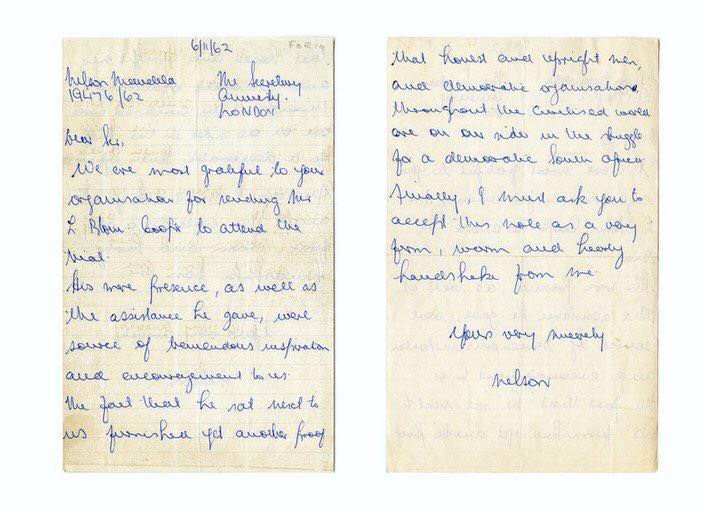 6/11/62
FOR 19
Nelson Mandela
19476/62
The Secretary
Amnesty.
LONDON
Dear Sir,
We are most grateful to your
organisation for sending Mr
L. Blom-Cooper to attend the
trial.
His mere presence, as well as
the assistance he gave, were
source of tremendous inspiration
and encouragement to us.
The fact that he sat next to
us furnished yet another proof
that honest and upright men,
and democratic organisations,
throughout the civilised world
are on our side in the struggle
for a democratic South Africa.
Finally, I must ask you to
accept this note as a very
firm, warm and hearty
handshake from me.
Yours very sincerely
Nelson